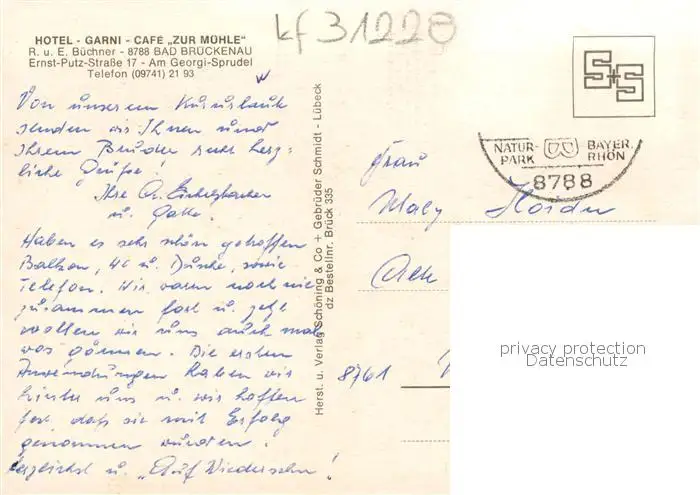 HOTEL - GARNI - CAFÉ „ZUR MÜHLE"
R. u. E. Büchner - 8788 BAD BRÜCKENAU
Ernst-Putz-Straße 17 - Am Georgi-Sprudel
Telefon (09741) 21 93
kf 31220
Von unserem Kururlaub
senden wir Ihnen und
Ihrem Bruder recht herz-
liche Grüße!
Ihre
u. Gatte.
Haben es sehr schön getroffen
Balkon, WC u. Dusche, sowie
Telefon. Wir waren noch nie
zusammen fort u. jetzt
wollen wir uns auch mal
was gönnen. Die ersten
Anwendungen haben wir
hinter uns u. wir hoffen
fest, daß sie mit Erfolg
genommen wurden.
Herzlichst u. „Auf Wiedersehn"!
Herst. u. Verlag Schöning & Co + Gebrüder Schmidt - Lübeck
dz Bestellnr. Brück 335
S+S
NATUR- BAYER.
PARK RHÖN
8788
Frau
8761
privacy protection
Datenschutz